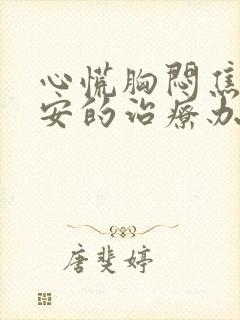 心慌胸闷焦
安的治疗办
唐斐婷